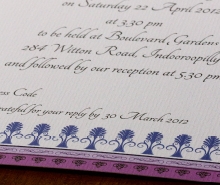 on Saturday 22 April 2012
at 3.30 pm
to be held at Boulevard, Gardens
284 Witton Road, Indooroopilly
and followed by our reception at 5.30 pm
ess Code
rateful for your reply by 30 March 2012